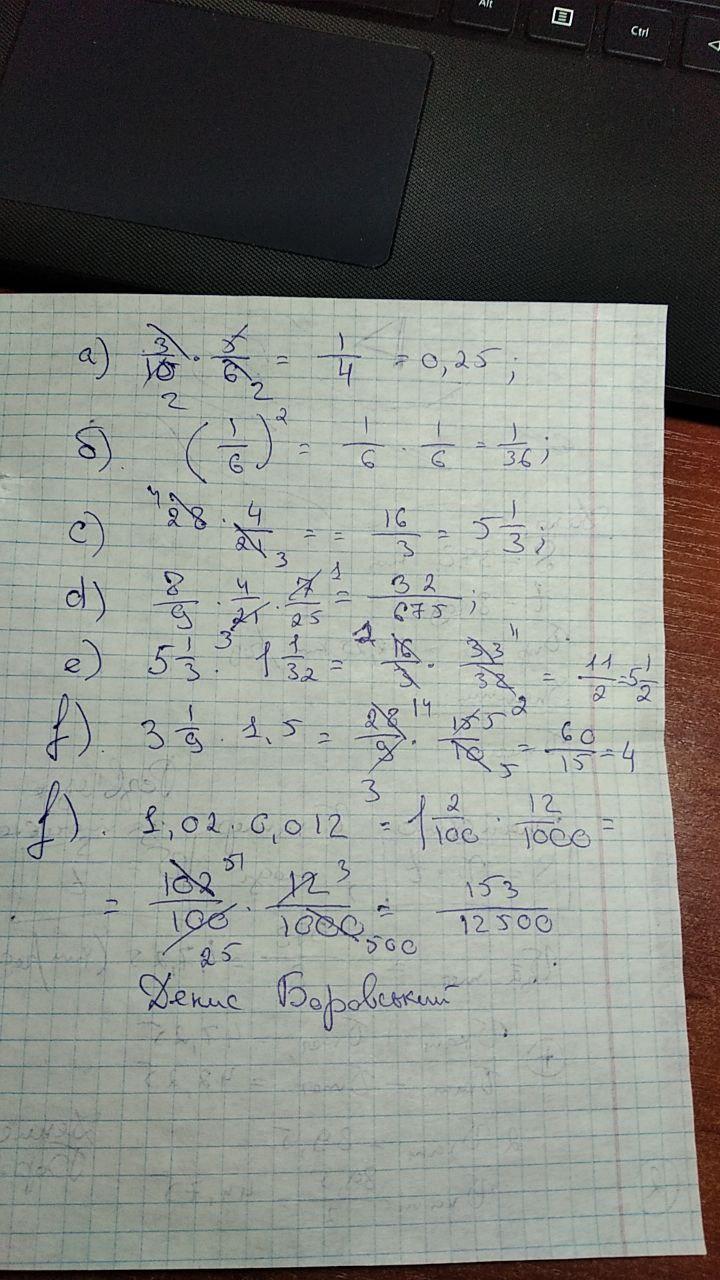 Alt
Ctrl
a) 3/10 · 5/6 = 1/4 = 0,25;
2 2
б). (1/6)² = 1/6 · 1/6 = 1/36;
c) 4 28 · 4/21 3 = = 16/3 = 5 1/3;
d) 8/9 · 4/21 3 · 7/25 1 = 32/675;
e) 5 1/3 · 1 1/32 = 16/3 · 33/32 11 2 = 11/2 = 5 1/2
f). 3 1/9 · 1,5 = 28/9 14 3 · 15/10 5 2 5 = 60/15 = 4
f). 1,02 · 0,012 = 1 2/100 · 12/1000 =
= 102/100 51 25 · 12/1000 3 500 = 153/12500
Денис Боровський